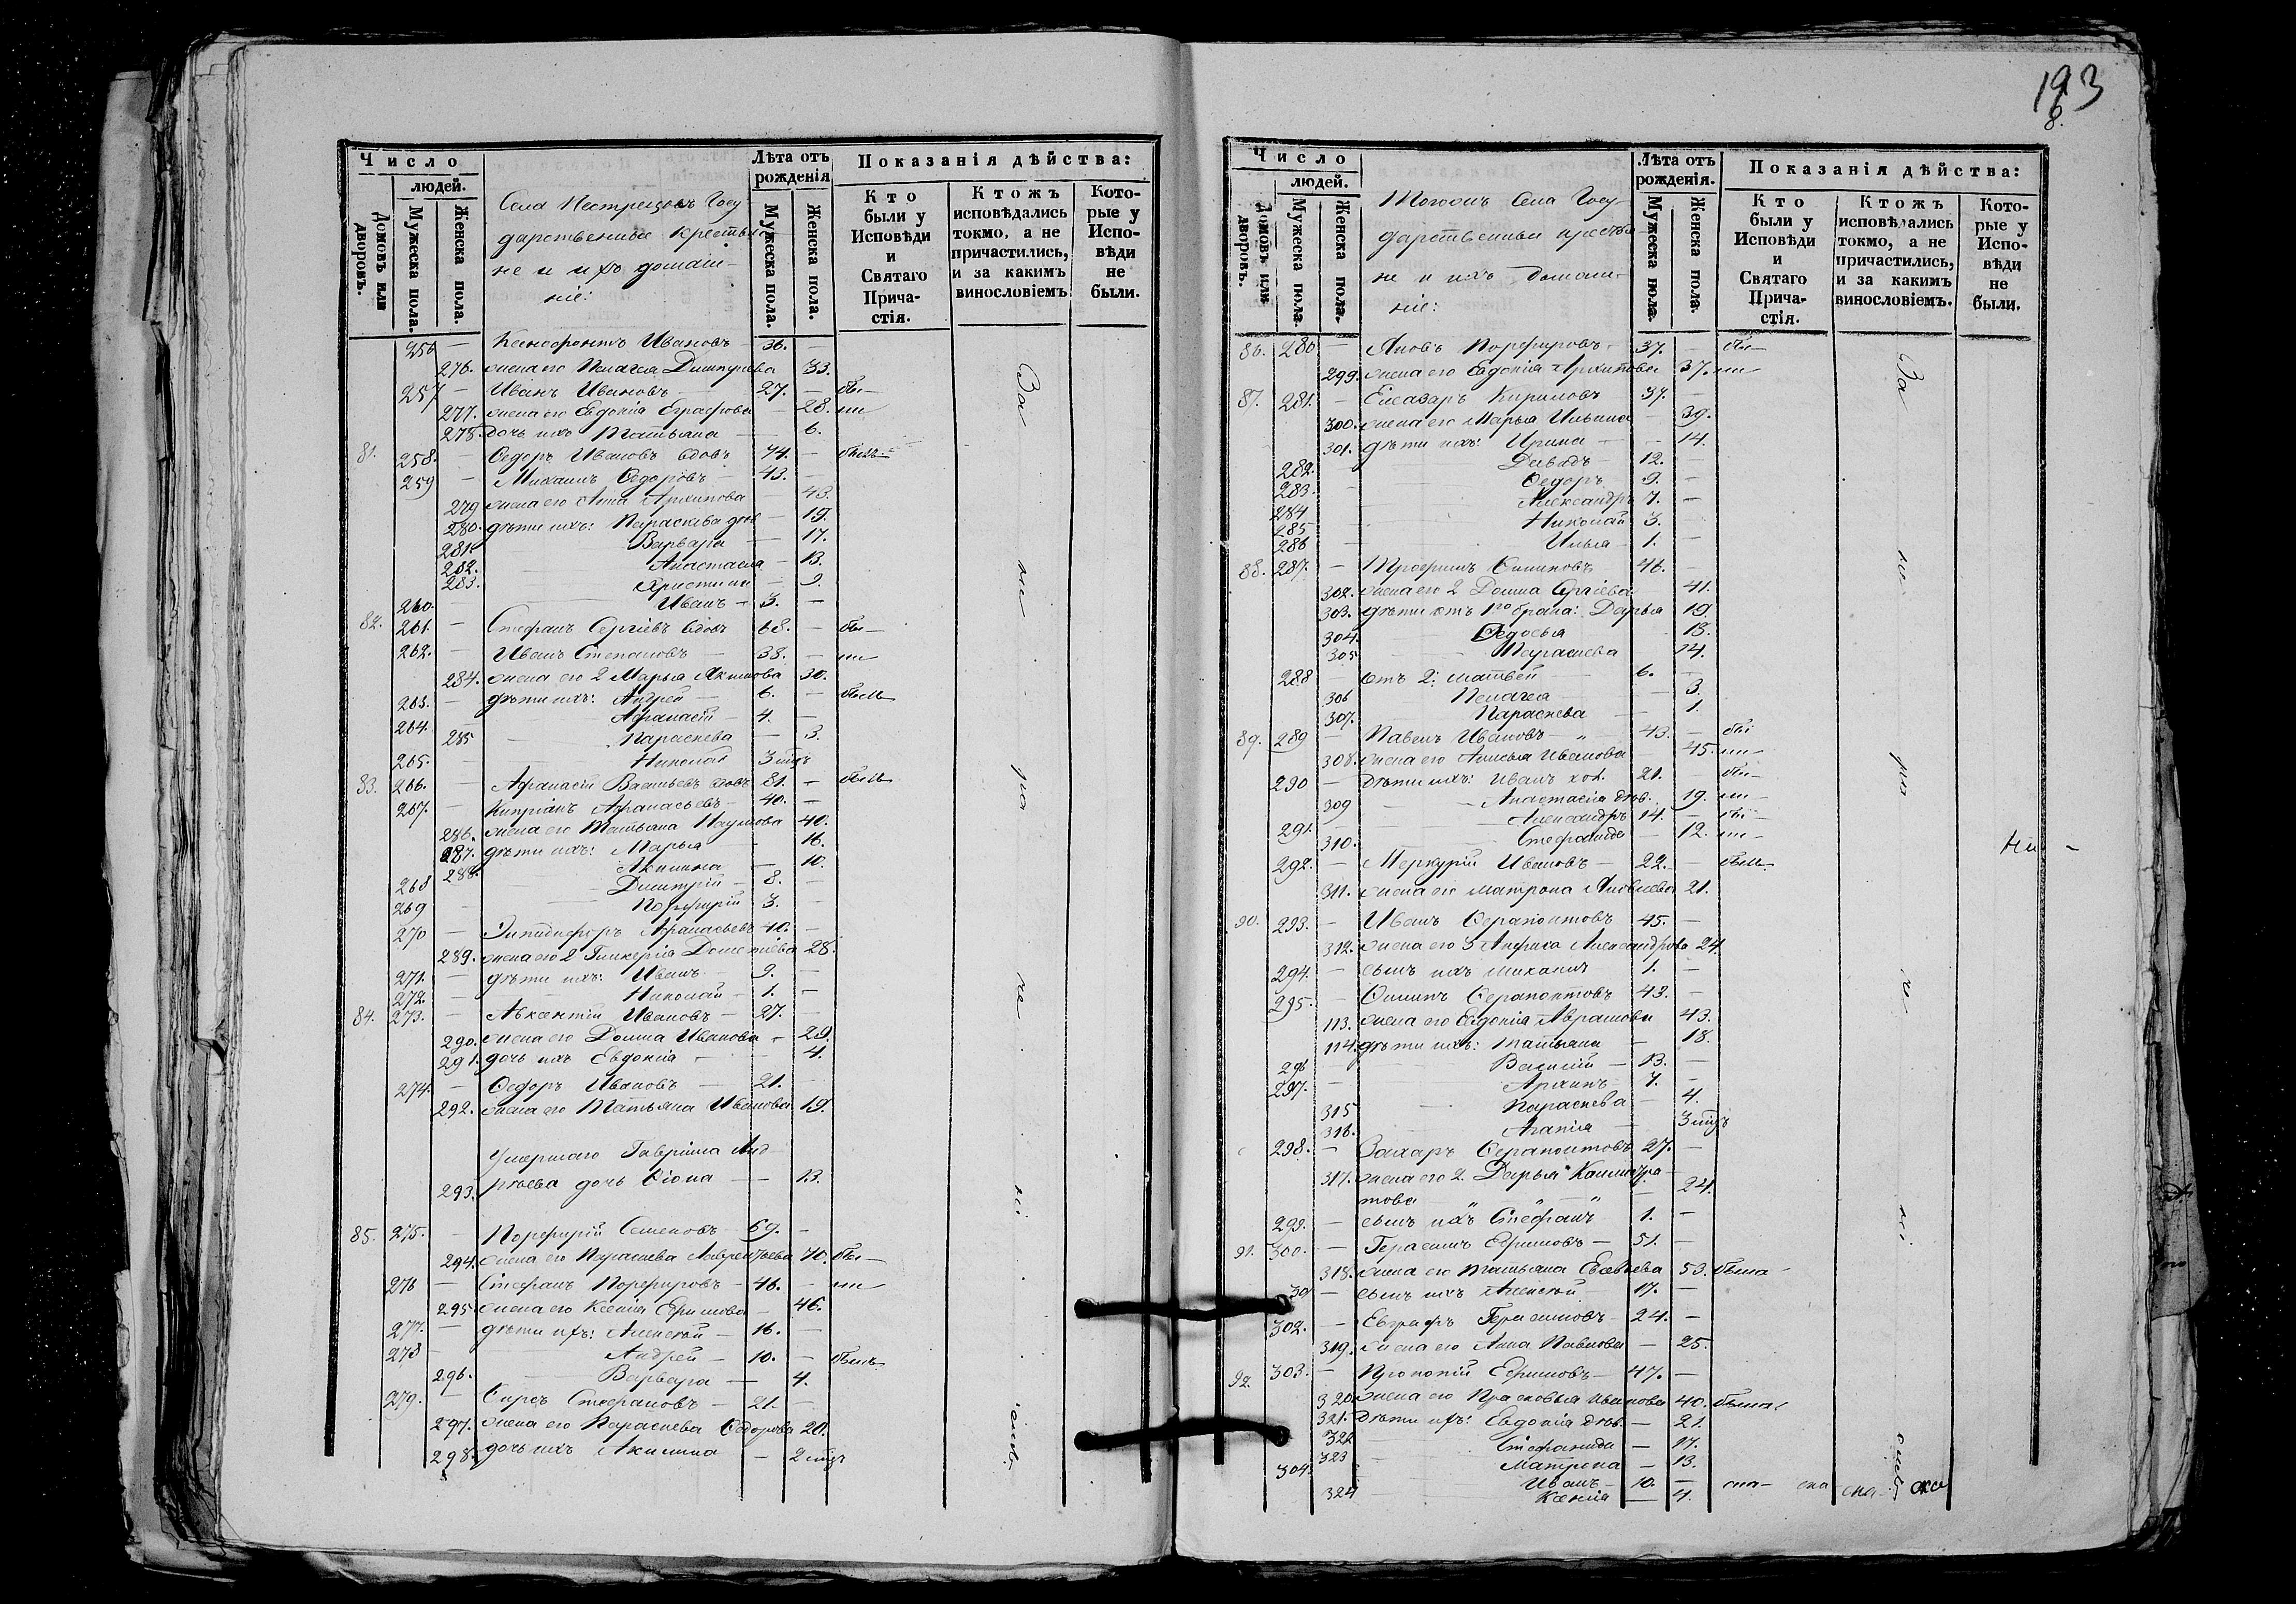 Число
людей.
Домовъ или дворовъ.
Мужеска пола.
Женска пола.
Села Пестрецовъ Госу-
дарственные крестья-
не и ихъ домаш-
ніе:
Лѣта отъ рожденія
Мужеска пола.
Женска пола.
Показанія дѣйства:
Кто были у Исповѣди и Святаго Прича-стія.
Ктожъ исповѣдались токмо, а не причастились, и за какимъ винословіемъ
Кото-рые у Испо-вѣди не были.
256 — Ксенофонтъ Ивановъ — 36. —
276. жена его Пелагея Димитріева 33.
257 — Иванъ Ивановъ 27. — бы-
277. жена его Евдокія Евграфова — 28. ли
278. дочь ихъ Татьяна — 6.
81. 258. — Ѳедоръ Ивановъ вдовъ 74. — былъ
259 — Михаилъ Ѳедоровъ 43. —
279 жена его Анна Архипова — 43.
280. дѣти ихъ: Параскева дѣв. — 19.
281. Варвара — 17.
282. Анастасія — 13.
283. Христина — 9.
260. — Иванъ — 3. —
82. 261. — Стефанъ Сергіевъ вдовъ 68. — бы-
262. — Иванъ Степановъ — 38. — ли
284. жена его 2 Марья Акимова 30.
263. — дѣти ихъ: Андрей — 6. — были
264. Афанасій — 4. —
285 Параскева — 3.
265. — Николай 3 мцъ
83. 266. — Афанасій Васильевъ вдовъ 81. — былъ
267. — Кипріанъ Афанасьевъ — 40. —
286. жена его Татьяна Наумова 40.
287. дѣти ихъ: Марья — 16.
288. Акилина — 10.
268 Димитрій — 8. —
269 — Порфирій 3. —
270 — Эпидифоръ Афанасьевъ 40. —
289. жена его 2 Гликерія Дометіева 28.
271. — дѣти ихъ: Иванъ — 9. —
272. — Николай — 1. —
84. 273. — Авксентій Ивановъ — 27. —
290. жена его Домна Иванова — 29.
291. дочь ихъ Евдокія — 4.
274. — Ѳедоръ Ивановъ — 21. —
292. жена его Татьяна Иванова 19.
Умершаго Гавріила Анд-
293. реева дочь Ѳіона — 13.
85. 275. — Порфирій Семеновъ — 69. —
294. жена его Параскева Лаврентьева 70. бы-
276 — Стефанъ Порфировъ — 46. — ли
295. жена его Ксенія Ефимова — 46.
277. — дѣти ихъ: Алексѣй — 16. —
278 — Андрей — 10. — былъ
296. — Варвара — 4.
279. — Карпъ Стефановъ — 21. —
297. жена его Параскева Ѳедорова 20.
298. дочь ихъ Акилина — 2 мцъ
За
не
ра
че
ні
емъ
193
8.
Число
людей.
Домовъ или дворовъ.
Мужеска пола.
Женска пола.
Тогожъ Села Госу-
дарственные крестья-
не и ихъ домаш-
ніе:
Лѣта отъ рожденія.
Мужеска пола.
Женска пола.
Показанія дѣйства:
Кто были у Исповѣди и Святаго Прича-стія.
Ктожъ исповѣдались токмо, а не причастились, и за какимъ винословіемъ.
Кото-рые у Испо-вѣди не были.
86. 280 — Яковъ Порфировъ — 37. — бы-
299. жена его Евдокія Архипова 37. ли
87. 281. — Елеазаръ Кириловъ 37. —
300. жена его Марья Ильина — 39.
301. дѣти ихъ: Ирина — 14.
282. Давыдъ — 12. —
283. — Ѳедоръ 9. —
284 Александръ 7. —
285 Николай 3. —
286 — Илья — 1. —
88. 287. — Трофимъ 46. —
302. жена его 2 Домна Сергіева 41.
303. дѣти отъ 1го брака: Дарья 19
304. Ѳедосья 18.
305 Параскева 14.
288 — отъ 2: Матвей — 6. —
306 Пелагея — 3.
307. Параскева — 1.
89. 289 — Павелъ Ивановъ — 43. — бы
308. жена его Аксинья Иванова 45. ли-
290 — дѣти ихъ: Иванъ хол. 21. — бы-
309 Анастасія дѣв. 19. ли-
291. Александръ 14. — бы-
310. Стефанида — 12. ли-
292. — Меркурій Ивановъ — 22. — были
311. жена его Матрона Яковлева 21.
90. 293. — Иванъ Ѳерапонтовъ 45. —
312. жена его 3 Анфиса Александрова 24.
294. — сынъ ихъ Михаилъ 1. —
295. — Филипъ Ѳерапонтовъ 43. —
113. жена его Евдокія Аврамова 43.
114. дѣти ихъ: Татьяна — 18.
296 Василій — 13. —
297. — Архипъ — 7. —
315 Параскева — 4.
316. Агапія — 3 мцъ
298. — Захаръ Ѳерапонтовъ 27. —
317. жена его 2. Дарья Каллистра-
това — 24.
299. — сынъ ихъ Стефанъ 1. —
91. 300. — Герасимъ Ефимовъ — 51. —
318. жена его Татьяна Евсѣева 53. была
301 — сынъ ихъ Алексѣй 17. —
302. — Евграфъ Герасимовъ 24. —
319. жена его Анна Павлова — 25.
92. 303. — Прокопій Ефимовъ — 47. —
320 жена его Прасковья Иванова 40. была
321. дѣти ихъ: Евдокія дѣв. — 21.
322 Стефанида — 17.
323 Матрона — 13.
304. Иванъ — 10. —
324 Ксенія — 4.
За
не
ра
че
ні
емъ